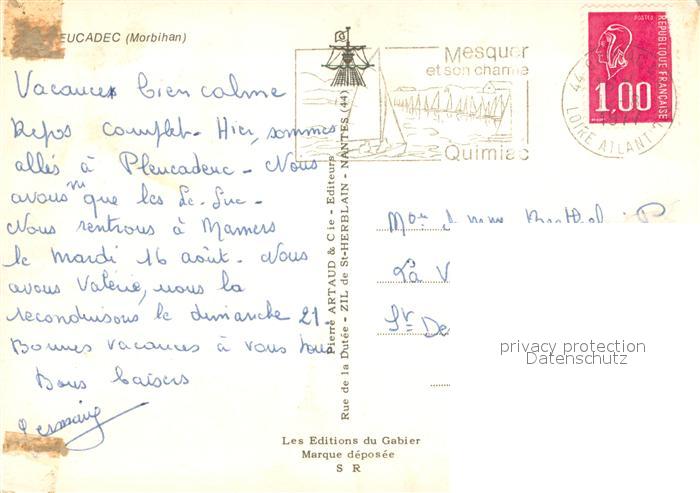 EUCADEC (Morbihan)
Vacances bien calme
Repos complet. Hier, sommes
allés à Pleucadeuc - Nous
avons vu que les Le-Luc -
Nous rentrons à Mamers
le mardi 16 août. Nous
avons Valérie, nous la
reconduisons le dimanche 21.
Bonnes vacances à vous tous
Bons baisers
Pierre ARTAUD & Cie - Editeurs
Rue de la Dutée - ZIL de St-HERBLAIN - NANTES (44)
Mesquer
et son charme
Quimiac
POSTES
REPUBLIQUE FRANÇAISE
1,00
44
LOIRE ATLANT
La V
St De
privacy protection
Datenschutz
Les Editions du Gabier
Marque déposée
S R